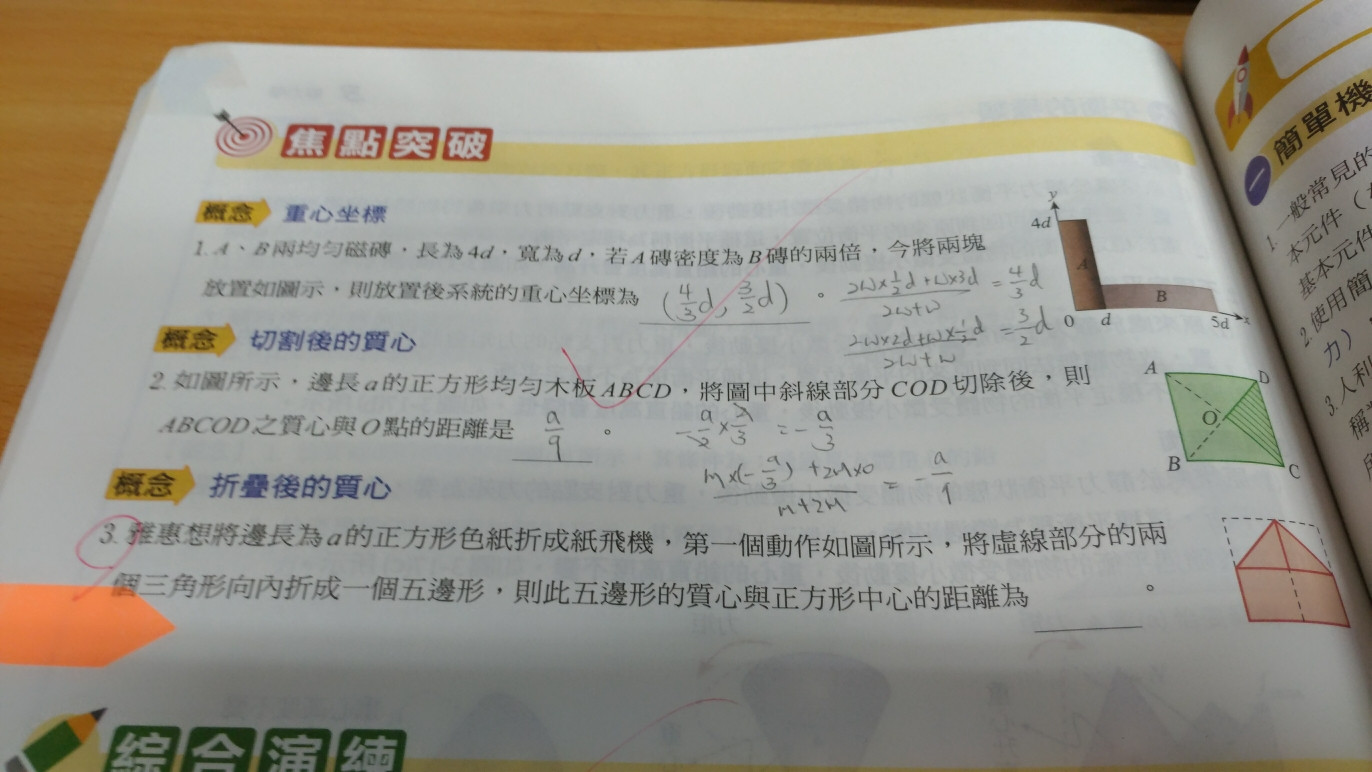 焦點突破
概念 重心坐標
1. A、B兩均勻磁磚,長為4d,寬為d,若A磚密度為B磚的兩倍,今將兩塊
放置如圖示,則放置後系統的重心坐標為 (4/3 d, 3/2 d) 。
(2W×1/2d+W×3d)/(2W+W) = 4/3 d
(2W×2d+W×1/2d)/(2W+W) = 3/2 d
y
4d
A
B
0 d 5d x
概念 切割後的質心
2. 如圖所示,邊長a的正方形均勻木板ABCD,將圖中斜線部分COD切除後,則
ABCOD之質心與O點的距離是 a/9 。
-a/2 × 2/3 = -a/3
(M×(-a/3)+2M×0)/(M+2M) = -a/9
A D
O
B C
概念 折疊後的質心
3. 雅惠想將邊長為a的正方形色紙折成紙飛機,第一個動作如圖所示,將虛線部分的兩
個三角形向內折成一個五邊形,則此五邊形的質心與正方形中心的距離為 。
綜合演練
一 簡單機
1. 一般常見的
本元件(
基本元件
2. 使用簡
力)
3. 人利
稱